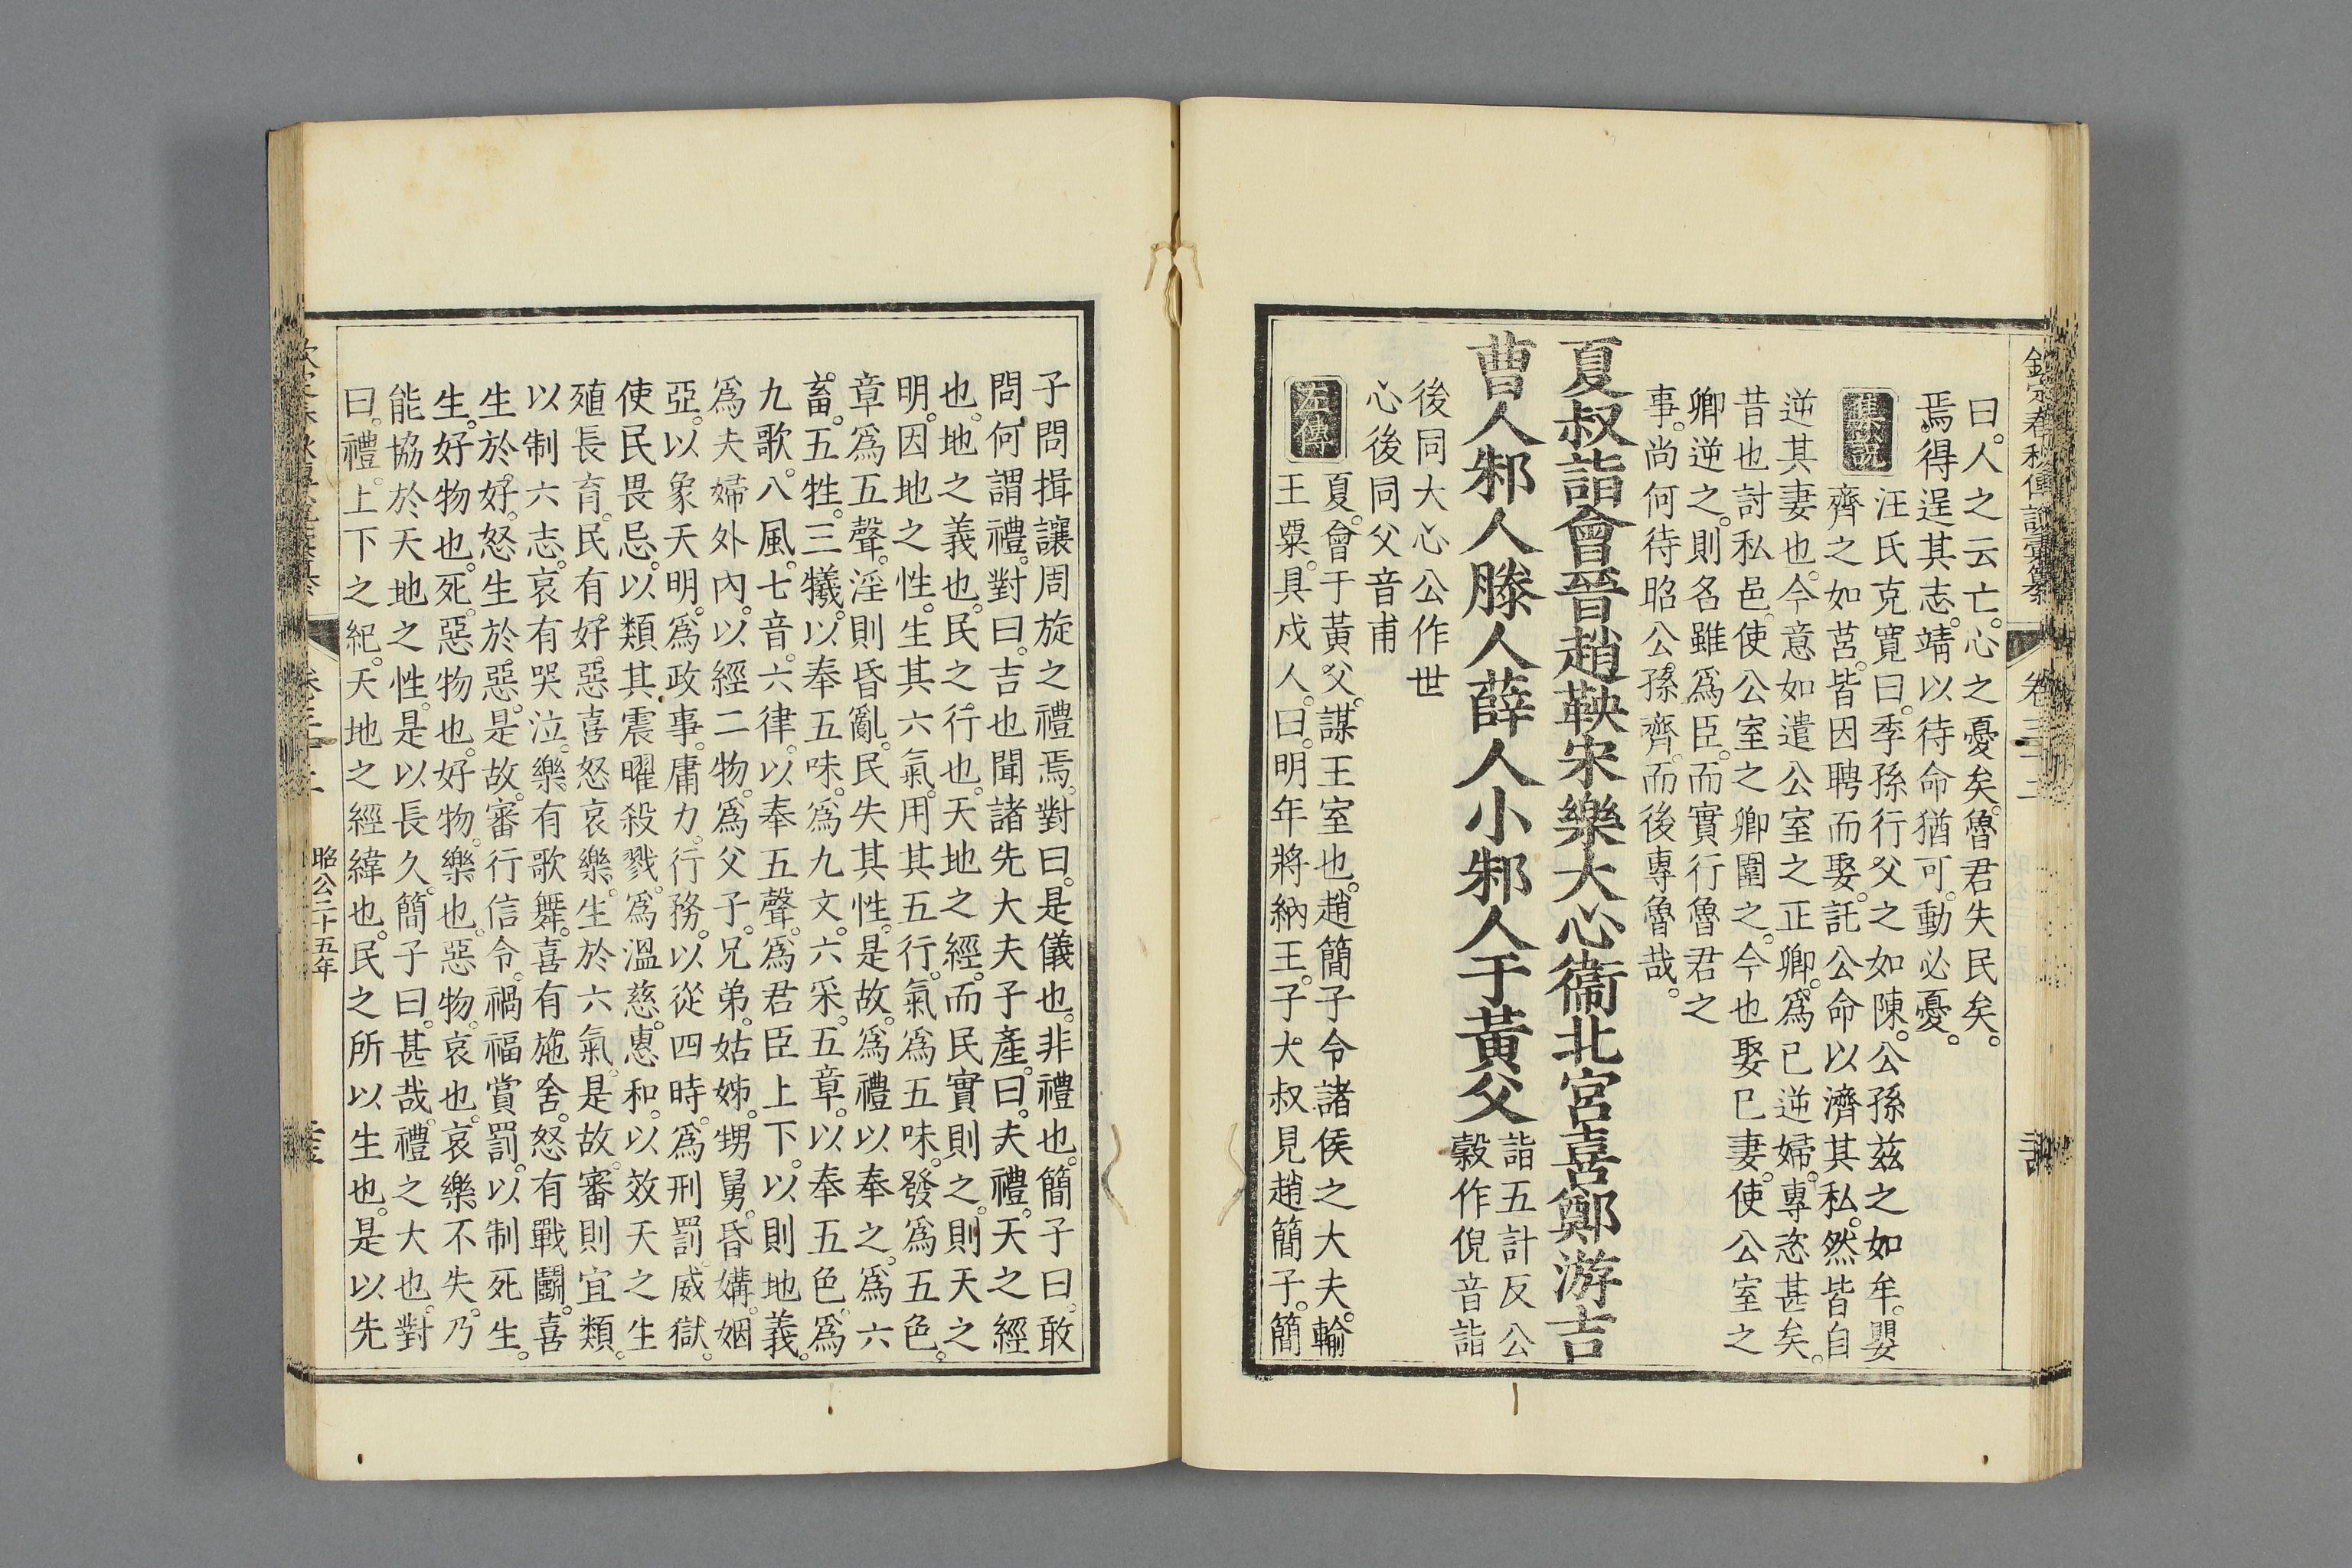 欽定春秋傳說彙纂 卷三十二
曰。人之云亡。心之憂矣。魯君失民矣。
焉。得逞其志。靖以待命猶可。動必憂。
集說 汪氏克寬曰。季孫行父之如陳。公孫茲之如牟。嬰
齊之如莒。皆因聘而娶。託公命以濟其私。然皆自
逆其妻也。今意如遣公室之正卿。爲已逆婦。專恣甚矣。
昔也討私邑。使公室之卿圍之。今也娶已妻。使公室之
卿逆之。則名雖爲臣。而實行魯君之
事。尚何待昭公孫齊。而後專魯哉。
夏叔詣會晉趙鞅宋樂大心衞北宮喜鄭游吉
曹人邾人滕人薛人小邾人于黃父
詣五計反公
穀作倪音詣
後同大心公作世
心後同父音甫
左傳 夏。會于黃父。謀王室也。趙簡子令諸侯之大夫。輸
王粟。具戍人。曰。明年將納王。子大叔見趙簡子。簡
子問揖讓周旋之禮焉。對曰。是儀也。非禮也。簡子曰。敢
問。何謂禮。對曰。吉也聞諸先大夫子產。曰。夫禮。天之經
也。地之義也。民之行也。天地之經。而民實則之。則天之
明。因地之性。生其六氣。用其五行。氣爲五味。發爲五色。
章爲五聲。淫則昏亂。民失其性。是故。爲禮以奉之。爲六
畜。五牲。三犧。以奉五味。爲九文。六采。五章。以奉五色。爲
九歌。八風。七音。六律。以奉五聲。爲君臣上下。以則地義。
爲夫婦外內。以經二物。爲父子。兄弟。姑姊。甥舅。昏媾。姻
亞。以象天明。爲政事。庸力。行務。以從四時。爲刑罰。威獄。
使民畏忌。以類其震曜殺戮。爲溫慈。惠和。以效天之生
殖長育。民有。好惡喜怒哀樂。生於六氣。是故。審則宜類。
以制六志。哀有哭泣。樂有歌舞。喜有施舍。怒有戰鬭。喜
生於好。怒生於惡。是故。審行信令。禍福賞罰。以制死生。
生。好物也。死。惡物也。好物。樂也。惡物。哀也。哀樂不失。乃
能協於天地之性。是以長久。簡子曰。甚哉。禮之大也。對
曰。禮。上下之紀。天地之經緯也。民之所以生也。是以先
昭公二十五年